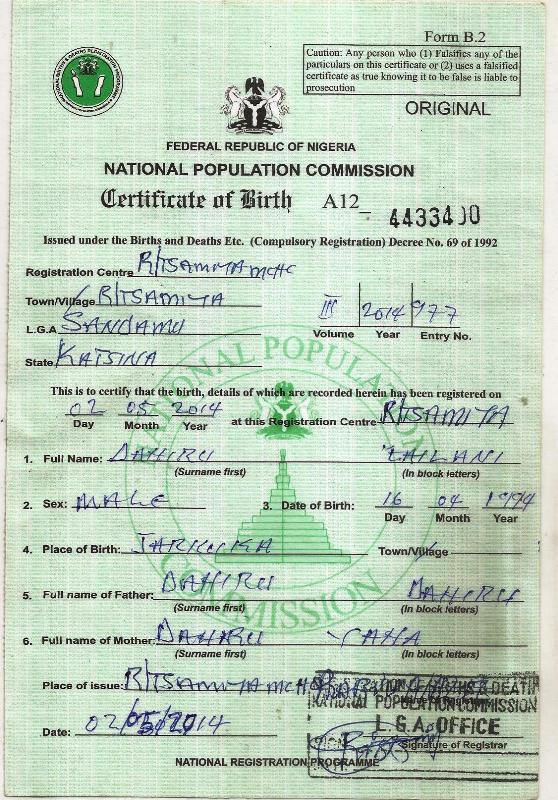 Form B.2
Caution: Any person who (1) Falsifies any of the
particulars on this certificate or (2) uses a falsified
certificate as true knowing it to be false is liable to
prosecution
ORIGINAL
FEDERAL REPUBLIC OF NIGERIA
NATIONAL POPULATION COMMISSION
Certificate of Birth A12 4433400
Issued under the Births and Deaths Etc. (Compulsory Registration) Decree No. 69 of 1992
Registration Centre R/TSAMIYA MCHC
Town/Village R/TSAMIYA
L.G.A SANDAMU
State KATSINA
III 2014 977
Volume Year Entry No.
This is to certify that the birth, details of which are recorded herein has been registered on
02 05 2014 at this Registration Centre R/TSAMIYA
Day Month Year
1. Full Name: DAHIRU
(Surname first) (In block letters)
2. Sex: MALE 3. Date of Birth: 16 04 1994
Day Month Year
4. Place of Birth: Town/Village
5. Full name of Father: DAHIRU
(Surname first) (In block letters)
6. Full name of Mother: DAHIRU
(Surname first) (In block letters)
Place of issue: R/TSAMIYA MCHC
NATIONAL POPULATION COMMISSION
L.G.A. OFFICE
Date: 02/05/2014
Signature of Registrar
NATIONAL REGISTRATION PROGRAMME
NATIONAL POPULATION COMMISSION